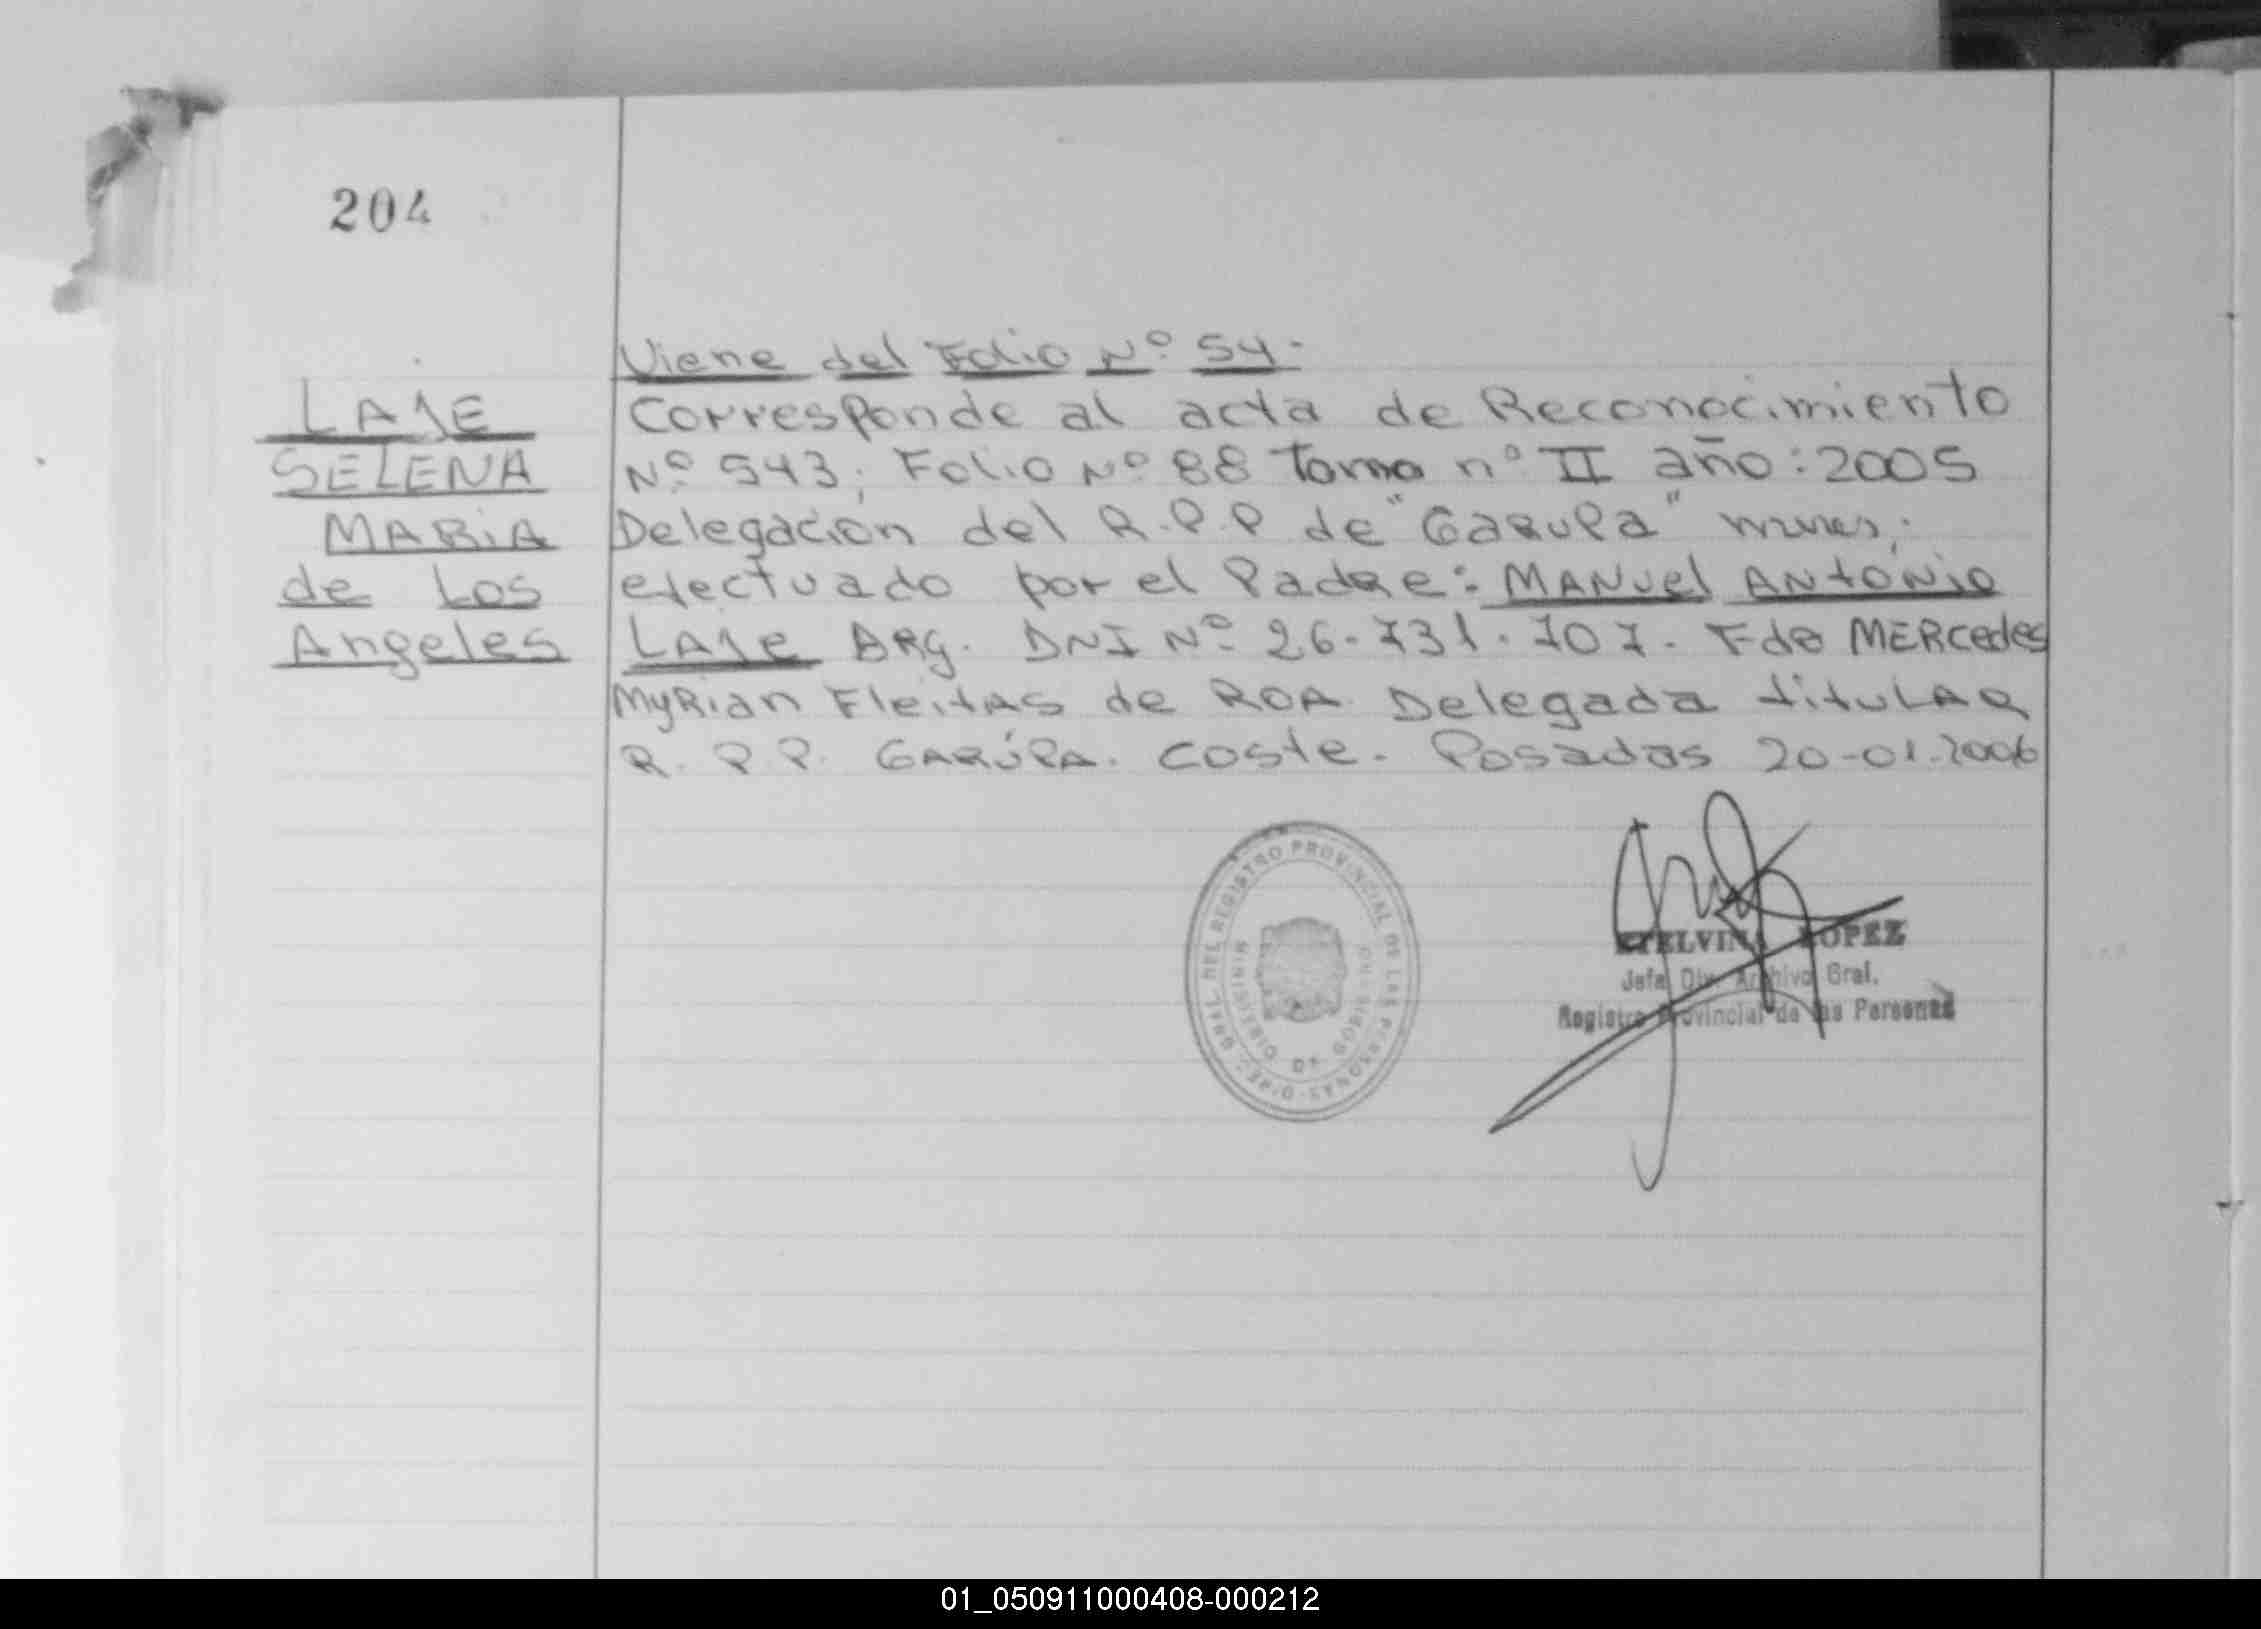 204
LAJE
SELENA
MARIA
de Los
Angeles
Viene del Folio Nº 54.
Corresponde al acta de Reconocimiento
Nº 543; Folio Nº 88 Tomo nº II año: 2005
Delegación del R.P.P de "GaRuPa"
efectuado por el Padre: MANuel ANtONio
LAJe ARg. DNI Nº 26.731.707. Fdo MERcedes
MyRian FleitAs de ROA. Delegada titulAR
R.P.P. GARÚPA. Coste. Posadas 20-01-2006
DIREC. GRAL. DEL REGISTRO PROVINCIAL DE LAS PERSONAS
MINISTERIO DE GOBIERNO
ETELVINA LOPEZ
Jefa Div. Archivo Gral.
Registro Provincial de las Personas
01_050911000408-000212